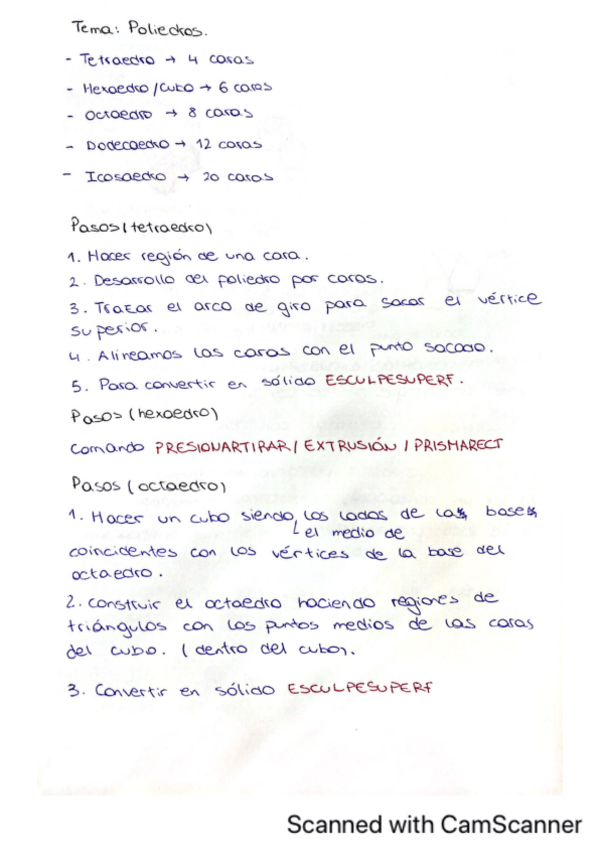 Tema: Poliedros.
- Tetraedro → 4 caras
- Hexaedro/Cubo → 6 caras
- Octaedro → 8 caras
- Dodecaedro → 12 caras
- Icosaedro → 20 caras
Pasos (tetraedro)
1. Hacer región de una cara.
2. Desarrollo del poliedro por caras.
3. Trazar el arco de giro para sacar el vértice
superior.
4. Alineamos las caras con el punto sacado.
5. Para convertir en sólido ESCULPESUPERF.
Pasos (hexaedro)
Comando PRESIONARTIRAR / EXTRUSIÓN / PRISMARECT
Pasos (octaedro)
1. Hacer un cubo siendo los lados de la base
el medio de
coincidentes con los vértices de la base del
octaedro.
2. Construir el octaedro haciendo regiones de
triángulos con los puntos medios de las caras
del cubo. (dentro del cubo).
3. Convertir en sólido ESCULPESUPERF
Scanned with CamScanner